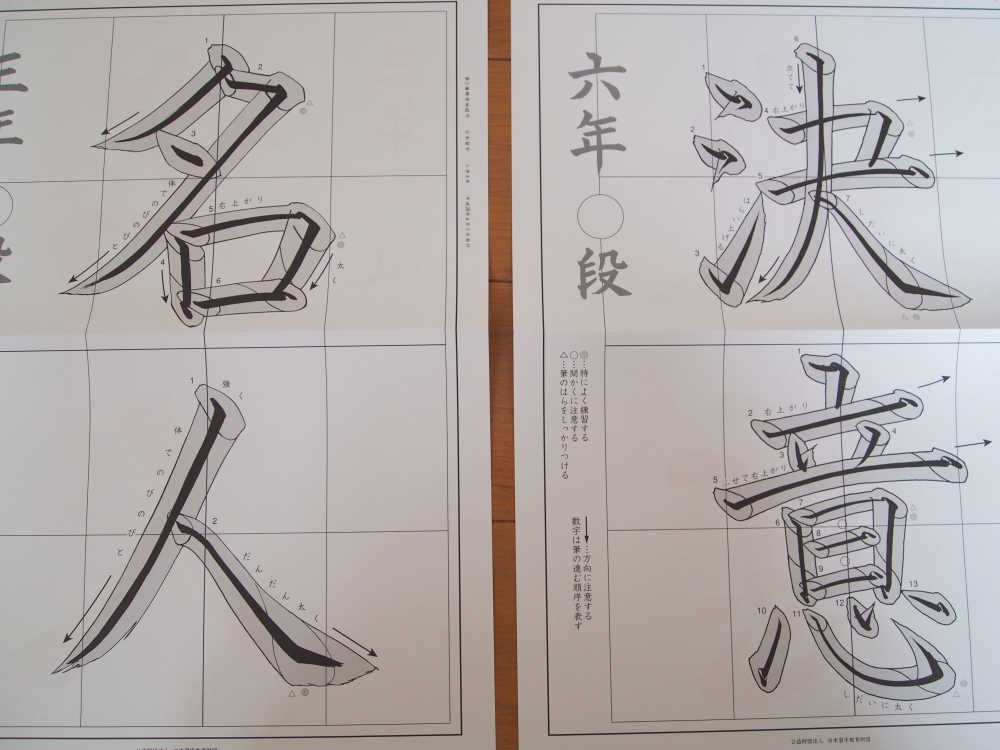 決意
六年
段
1
2
3
4 右上がり
5
6 立てて
7 しだいに太く
はらいあげる
◎…特によく練習する
○…間かくに注意する
△…筆のはらをしっかりつける
↓…方向に注意する
数字は筆の進む順序を表す
1
2 右上がり
3
4
5 ふせて右上がり
6
7
8
9
10
11
12
13
しだいに太く
公益財団法人 日本習字教育財団
名人
年
段
1
2
3
4
5 右上がり
6
体でのびのびと
太く
1 強く
2
体でのびのびと
だんだん太く